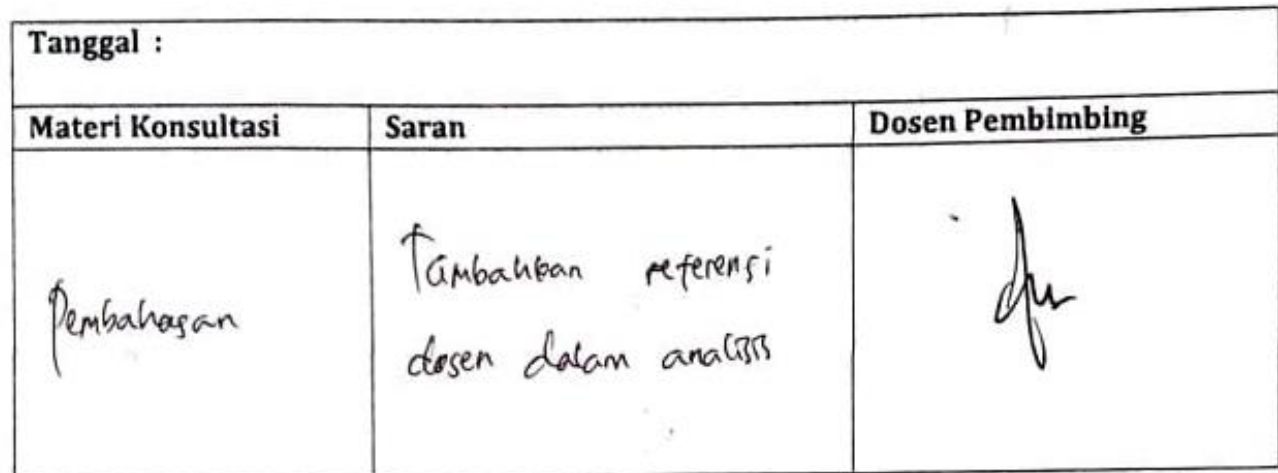 Tanggal :
Materi Konsultasi Saran Dosen Pembimbing
Pembahasan
Tambahkan referensi
dosen dalam analisis